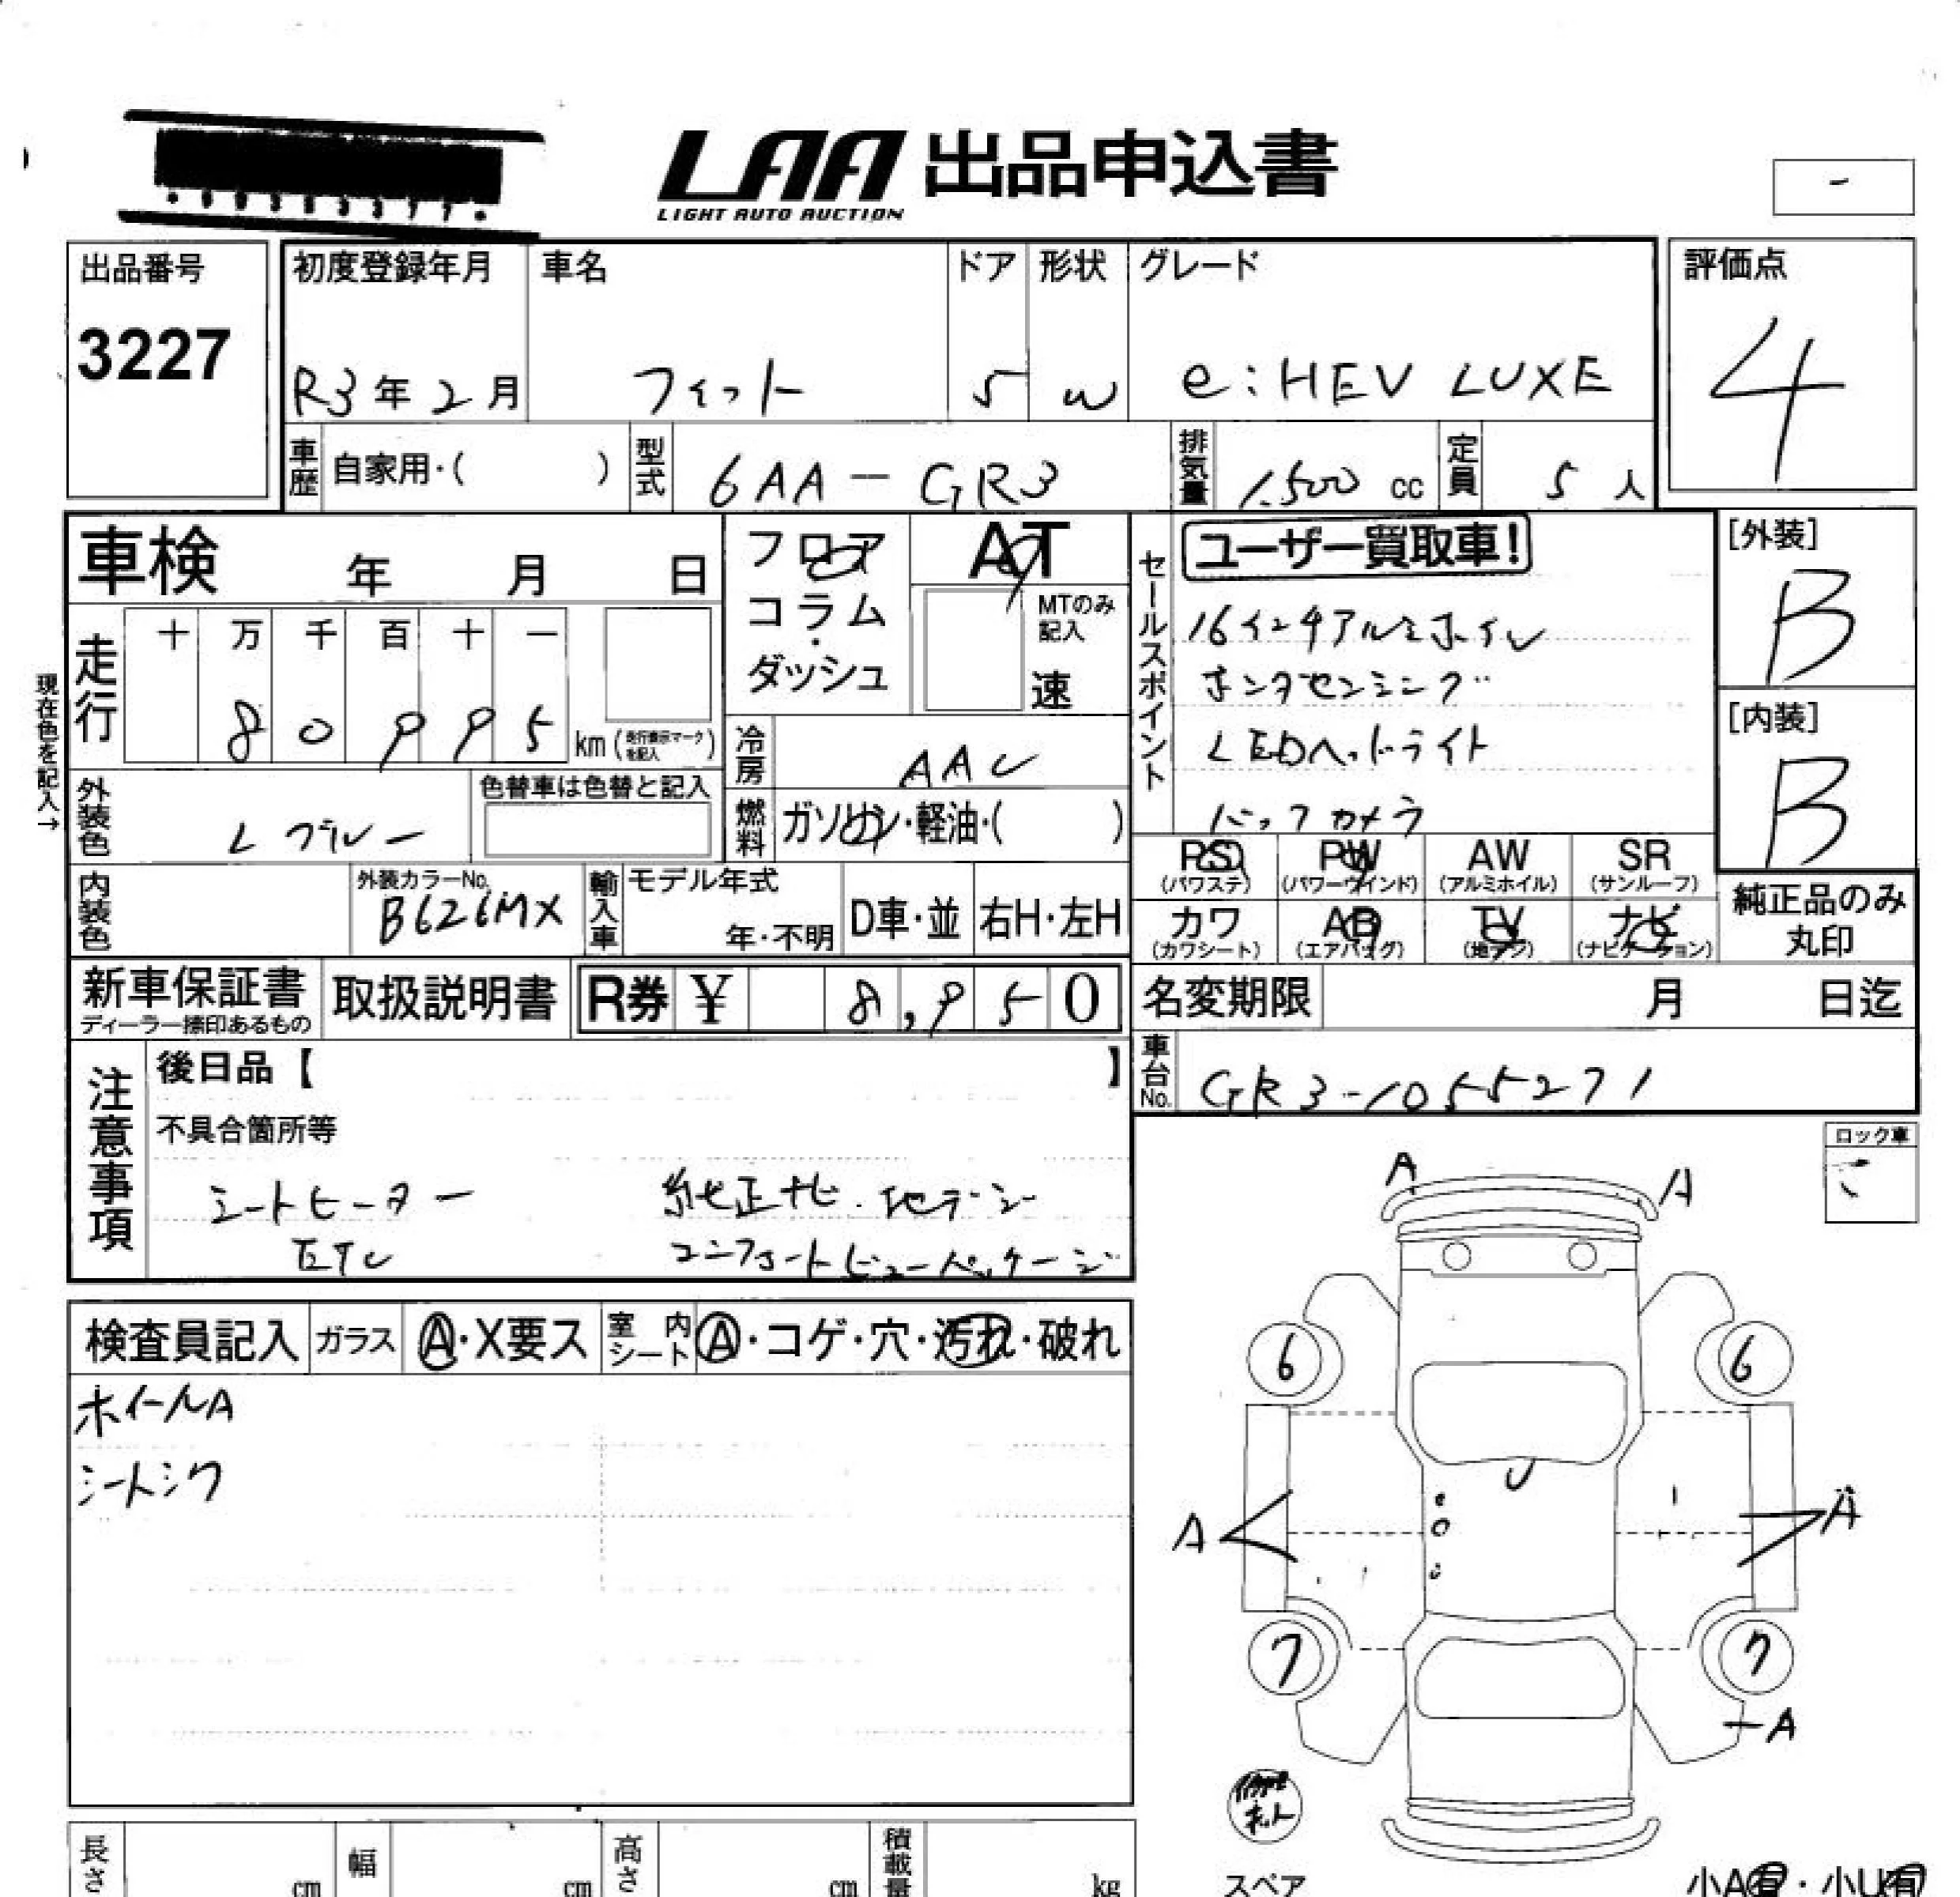 LAA 出品申込書
LIGHT AUTO AUCTION
-
出品番号
3227
初度登録年月
R3年2月
車名
フィット
ドア
5
形状
W
グレード
e:HEV LUXE
評価点
4
車歴
自家用・( )
型式
6AA-GR3
排気量
1.500 cc
定員
5 人
車検 年 月 日
フロア
コラム
・
ダッシュ
AT
MTのみ
記入
速
セールスポイント
ユーザー買取車!
16インチアルミホイル
ホンダセンシング
LEDヘッドライト
バックカメラ
[外装]
B
[内装]
B
現在色を記入→
走行
十 万 千 百 十 一
8 0 9 9 5 km (走行表示マークを記入)
冷房
AAC
燃料
ガソリン・軽油・( )
外装色
Lブルー
色替車は色替と記入
内装色
外装カラーNo.
B626MX
輸入車
モデル年式
年・不明
D車・並
右H・左H
PS
(パワステ)
PW
(パワーウインド)
AW
(アルミホイル)
SR
(サンルーフ)
カワ
(カワシート)
AB
(エアバッグ)
TV
(地デジ)
ナビ
(ナビゲーション)
純正品のみ
丸印
新車保証書
ディーラー捺印あるもの
取扱説明書
R券 ¥ 8,950
名変期限 月 日迄
車台No.
GR3-1055271
注意事項
後日品【 】
不具合箇所等
シートヒーター 純正ナビ・地デジ
ETC コンフォートビューパッケージ
ロック車
検査員記入
ガラス
A・X要ス
室内
シート
A・コゲ・穴・汚れ・破れ
ホイールA
シートシワ
A
A
6
6
U
A
A
7
7
A
スペア
小A有・小U有
長さ
cm
幅
cm
高さ
cm
積載量
kg